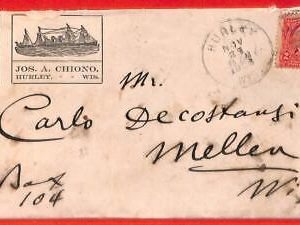 JOS. A. CHIONO,
HURLEY, - - WIS.
HURLEY
NOV
Mr.
Carlo Decostanzi
Mellen
Wis
Box
104